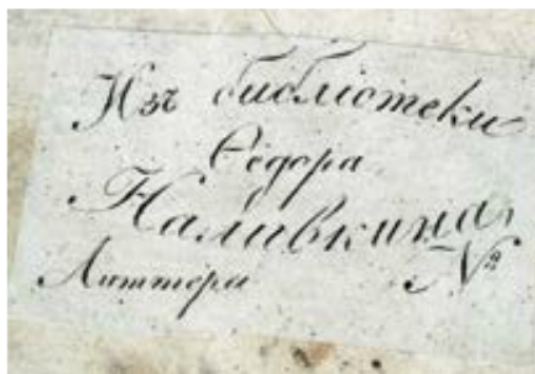 Изъ библіотеки
Ѳедора
Наливкина,
Литтера №